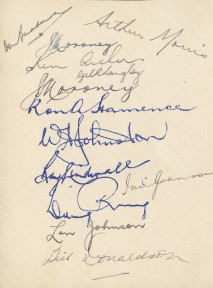 Don Bradman
Arthur Morris
J Moroney
Ken Archer
Gil Langley
J Moroney
Ron A Hamence
W A Johnston
Ray Lindwall
Ian Johnson
Doug Ring
Len Johnson
Bill Donaldson